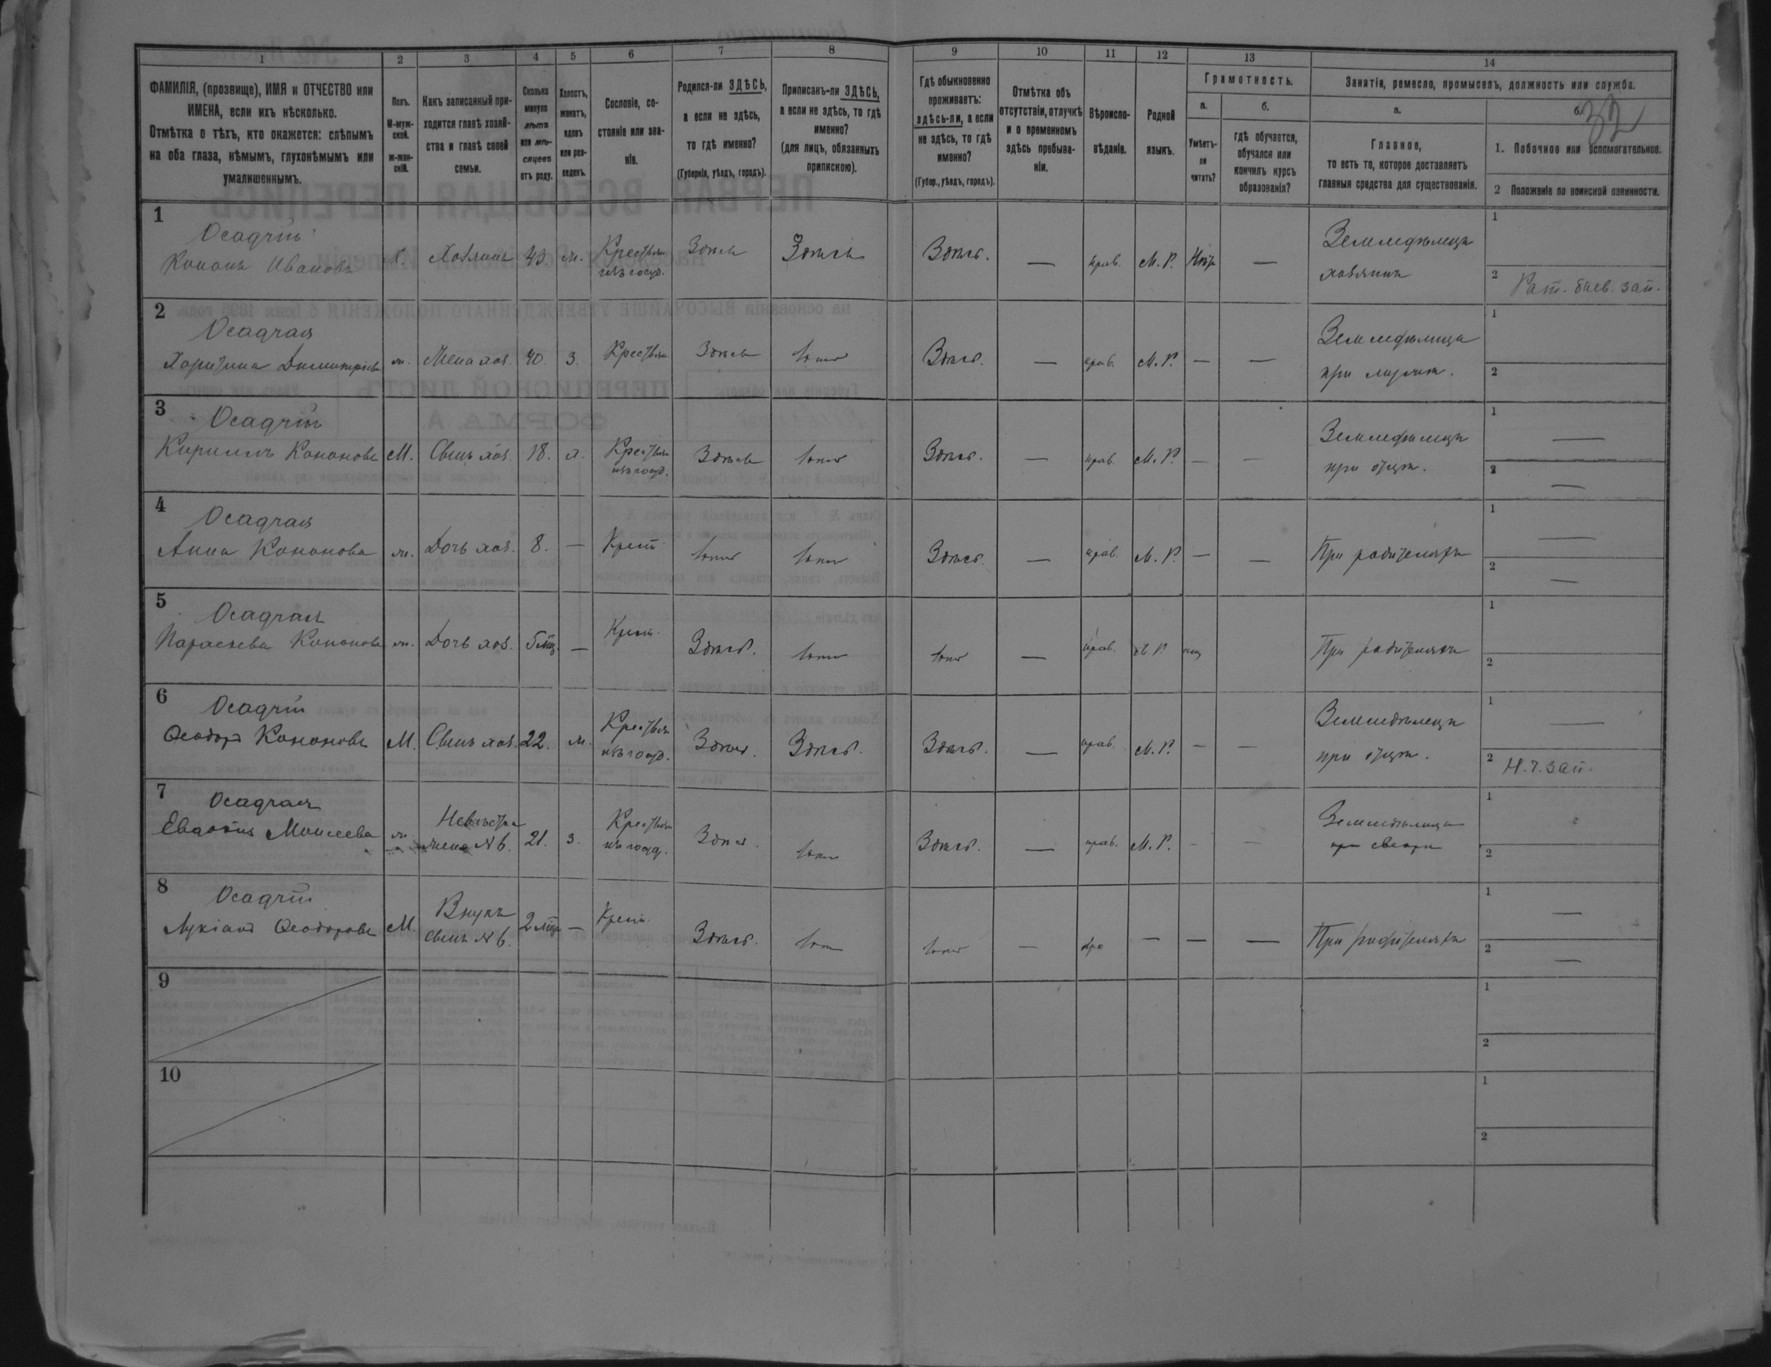 1
2
3
4
5
6
7
8
9
10
11
12
13
14
ФАМИЛІЯ, (прозвище), ИМЯ и ОТЧЕСТВО или
ИМЕНА, если ихъ нѣсколько.
Отмѣтка о тѣхъ, кто окажется: слѣпымъ
на оба глаза, нѣмымъ, глухонѣмымъ или
умалишеннымъ.
Полъ.
М-муж-
ской.
ж-жен-
скій.
Какъ записанный при-
ходится главѣ хозяй-
ства и главѣ своей
семьи.
Сколько
минуло
лѣтъ
или мѣ-
сяцевъ
отъ роду.
Холостъ,
женатъ,
вдовъ
или раз-
веденъ.
Сословіе, со-
стояніе или зва-
ніе.
Родился-ли ЗДѢСЬ,
а если не здѣсь,
то гдѣ именно?
(Губернія, уѣздъ, городъ).
Приписанъ-ли ЗДѢСЬ,
а если не здѣсь, то гдѣ
именно?
(для лицъ, обязанныхъ
припискою).
Гдѣ обыкновенно
проживаетъ:
здѣсь-ли, а если
не здѣсь, то гдѣ
именно?
(Губер., уѣздъ, городъ).
Отмѣтка объ
отсутствіи, отлучкѣ
и о временномъ
здѣсь пребыва-
ніи.
Вѣроиспо-
вѣданіе.
Родной
языкъ.
Грамотность.
а.
Умѣетъ-
ли
читать?
б.
гдѣ обучается,
обучался или
кончилъ курсъ
образованія?
Занятія, ремесло, промыселъ, должность или служба.
а.
Главное,
то есть то, которое доставляетъ
главныя средства для существованія.
б.
32
1. Побочное или вспомогательное.
2 Положеніе по воинской повинности.
1
Осадчій
Кононъ Ивановъ
Хозяинъ
43
м.
Крестьян
из госуд.
Здѣсь
Здѣсь
Здѣсь.
—
прав.
М. Р.
—
Земледѣлецъ
хозяинъ
1
2 Рат. зап.
2
Осадчая
Харитина Димитріева
ж.
Жена хоз.
40.
З.
Крестьян
Здѣсь
тоже
Здѣсь.
—
прав.
М. Р.
—
—
Земледѣлица
при мужѣ.
1
2
3
Осадчій
Кириллъ Кононовъ
М.
Сынъ хоз.
18.
х.
Крестьян
из госуд.
Здѣсь
тоже
Здѣсь.
—
прав.
М. Р.
—
—
Земледѣлецъ
при отцѣ.
1 —
2 —
4
Осадчая
Анна Кононова
ж.
Дочь хоз.
8.
—
Крест
тоже
тоже
Здѣсь.
—
прав.
М. Р.
—
—
При родителяхъ
1 —
2 —
5
Осадчая
Параскева Кононова
ж.
Дочь хоз.
—
Крест.
Здѣсь.
тоже
тоже
—
прав.
М Р
При родителяхъ
1
2
6
Осадчій
Ѳеодоръ Кононовъ
М.
Сынъ хоз.
22.
ж.
Крестьян
из госуд.
Здѣсь.
Здѣсь.
Здѣсь.
—
прав.
М. Р.
—
—
Земледѣлецъ
при отцѣ.
1 —
2 Н. Ч. зап.
7
Осадчая
Евдокія Моисеева
ж.
Невѣстка
жена N 6.
21.
З.
Крестьян
из госуд.
Здѣсь.
тоже
Здѣсь.
—
прав.
М. Р.
—
—
Земледѣлица
при свекрѣ
1
2
8
Осадчій
Лукіанъ Ѳеодоровъ
М.
Внукъ
сынъ N 6.
2 мѣс
—
Крест.
Здѣсь.
тоже
тоже
—
пра
—
—
—
При родителяхъ
1 —
2 —
9
1
2
10
1
2